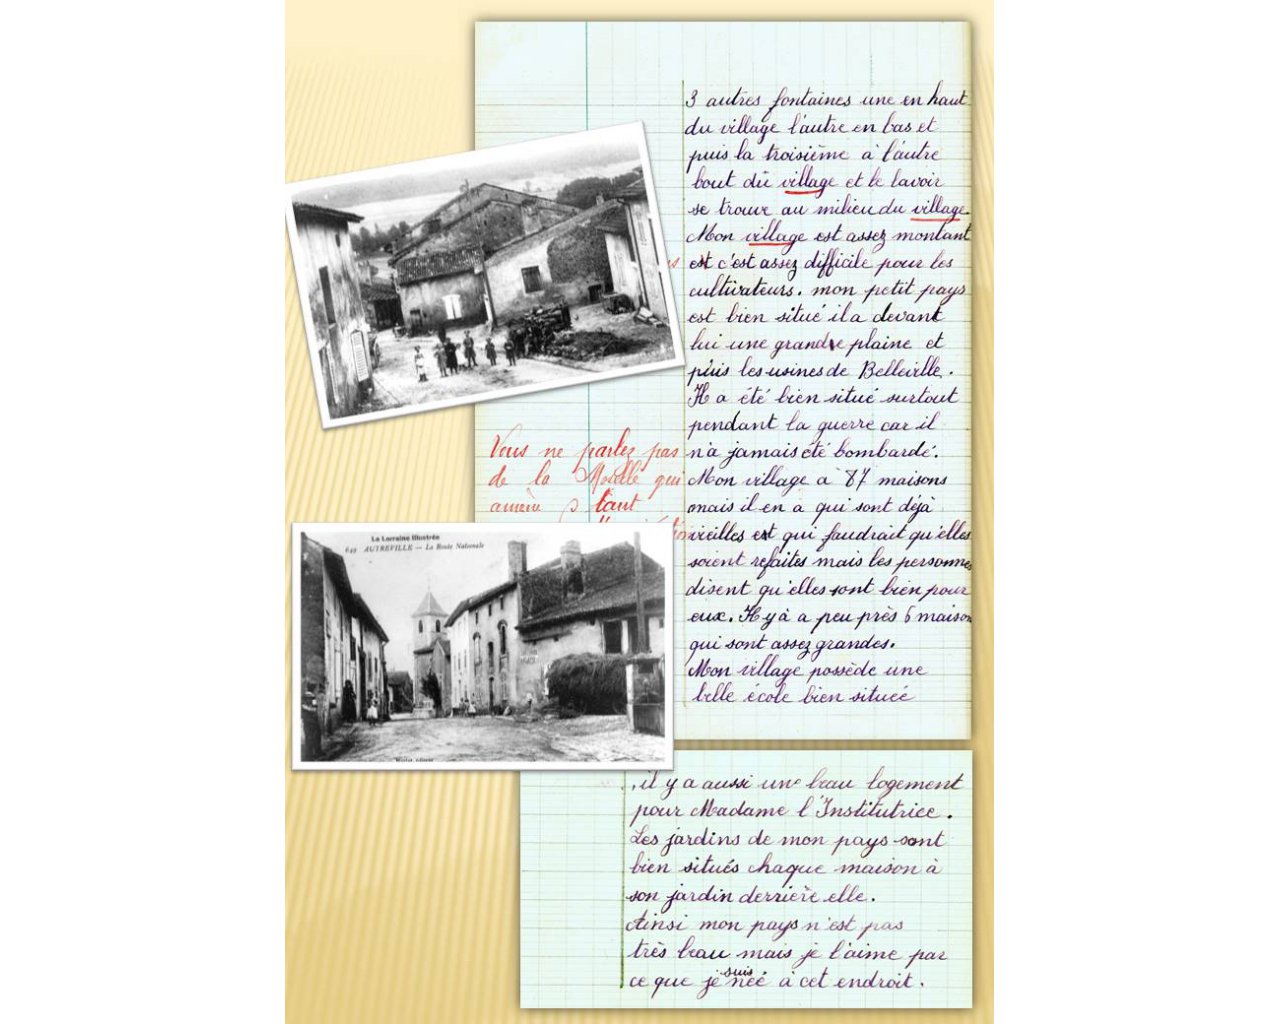 3 autres fontaines une en haut
du village l'autre en bas et
puis la troisième à l'autre
bout du village et le lavoir
se trouve au milieu du village.
Mon village est assez montant
et c'est assez difficile pour les
cultivateurs. mon petit pays
est bien situé il a devant
lui une grande plaine et
puis les usines de Belleville.
Il a été bien situé surtout
pendant la guerre car il
n'a jamais été bombardé.
Mon village a 87 maisons
mais il en a qui sont déjà
vieilles et qui faudrait qu'elles
soient refaites mais les personnes
disent qu'elles sont bien pour
eux. Il y à a peu près 6 maison
qui sont assez grandes.
Mon village possède une
belle école bien situeé
Vous ne parlez pas
de la Moselle qui
tant
La Lorraine Illustrée
649 AUTREVILLE — La Route Nationale
, il y a aussi une beau logement
pour Madame l'Institutrice.
Les jardins de mon pays sont
bien situés chaque maison à
son jardin derrière elle.
Ainsi mon pays n'est pas
très beau mais je l'aime par
ce que je suis neé à cet endroit.